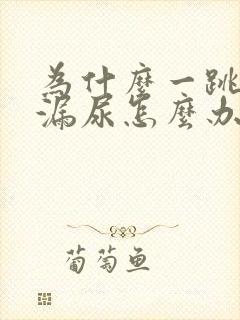 为什麼一跳
漏尿怎麼办
葡萄鱼